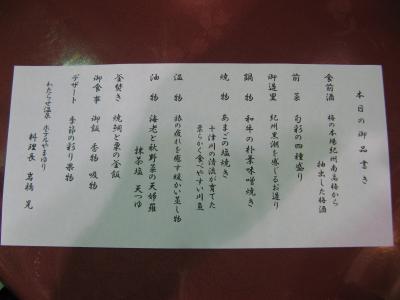 本日の御品書き
食前酒 梅の本場紀州南高梅から
抽出した梅酒
前菜 旬彩の四種盛り
御造里 紀州黒潮を感じるお造り
鍋物 和牛の朴葉味噌焼き
焼物 あまごの塩焼き
十津川の清流が育てた
柔らかく食べやすい川魚
温物 旅の疲れを癒す暖かい蒸し物
油物 海老と秋野菜の天婦羅
抹茶塩 天つゆ
釜焚き 焼鯛と栗の釜飯
御食事 御飯 香物 吸物
デザート 季節の彩り果物
わたらせ温泉
ホテルやまゆり
料理長 岩橋 晃